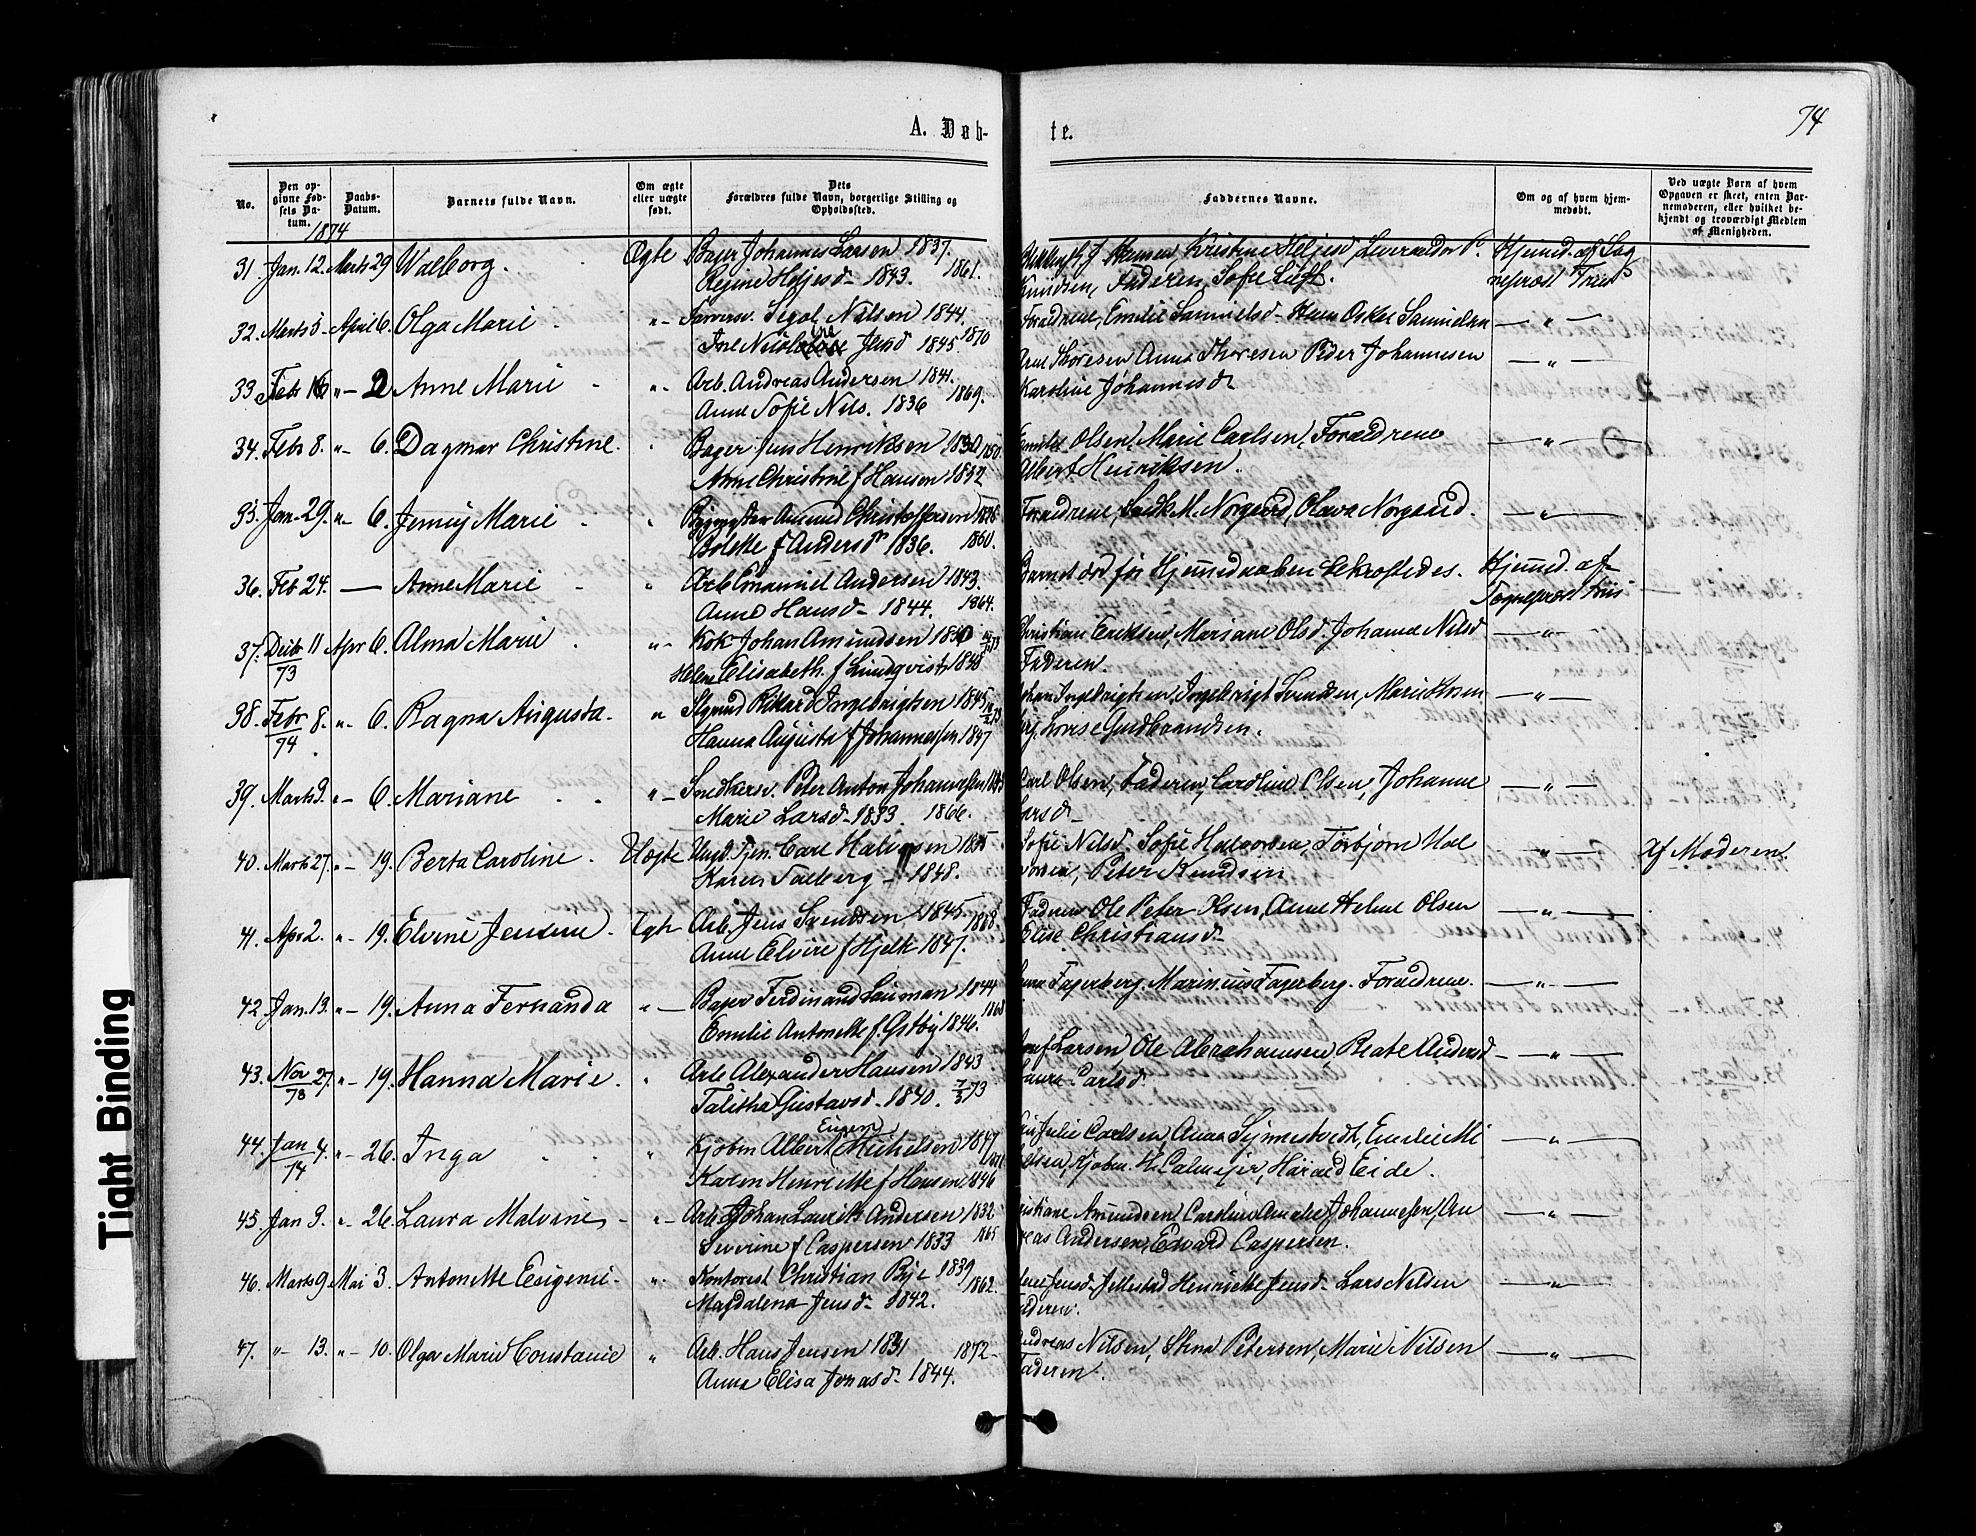 74
A. Døb-
te.
No.
Den op-
givne Fød-
sels Da-
tum.
Daabs-
Datum.
Barnets fulde Navn.
Om ægte
eller uægte
født.
Dets
Forældres fulde Navn, borgerlige Stilling og
Opholdssted.
Faddernes Navne.
Om og af hvem hjem-
medøbt.
Ved uægte Børn af hvem
Opgaven er skeet, enten Bar-
nemoderen, eller hvilket be-
kjendt og troværdigt Medlem
af Menigheden.
1874
31. Jan. 12. Marts 29 Walborg. Ægte Bager Johannes Larsen 1837. Hansen, Kristine Heljesd. P. Hjemd. af Sog
Regine Heljesd. 1843. 1861. Knudsen, Faderen, Sofie nepræst
32. Marts 5. April 6. Olga Marie " Nilsen 1844. Forældrene, Emilie Samuelsd. Hans Oskar Samuelsen — " —
Jensd 1845 1870
33. Febr 16 " 2 Anne Marie " Arb. Andreas Andersen 1841. Thoresen Anna Thoresen Peder Johannesen — " —
Anne Sofie Nils. 1836 1869. Karoline Johannesd.
34. Febr 8. " 6. Dagmar Christine. " Bager Jens Henriksen Olsen, Marie Carlsen, Forældrene — " —
Anne Christine f Hansen 1842 Albert Henriksen.
35. Jan. 29. " 6. Jenny Marie " Amund Christoffersen Forældrene, M. Norgaard, Olava Norgaard. — " —
Bolette f Andersd. 1836. 1860.
36. Feb 24. — Anne Marie " Arb Emanuel Andersen 1843. Barnet død før Hjemmedaaben bekræftedes. Hjemd. af
Anne Hansd. 1844. 1864. Sognepræst
37. Decbr 11 Apr 6. Alma Marie " Kok Johan Amundsen Christian Eriksen, Mariane Olsd. Johanne Nilsd — " —
73 Helene Elisabeth f Lundqvist 1848 Faderen.
38. Febr 8. " 6. Ragna Augusta. " Rikard Ingebrigtsen 1845 Johan Ingebrigtsen, Ingebrigt Svendsen, — " —
74 Hanna Augusta f Johannessen 1847 Lovise Gudbrandsen.
39. Marts 9. " 6. Mariane " Snedkersv. Peter Anton Johannessen Carl Olsen, Faderen, Caroline Olsen, Johanne — " —
Marie Larsd. 1833. 1866. Larsd.
40. Marts 27. " 19. Berta Caroline. Uægte Ungk. Tjen. Carl Halvorsen Sofie Nilsd. Sofie Halvorsen, Torbjørn Hal — " — Af Moderen.
Karen Solberg 1848. vorsen, Peter Knudsen
41. Apr 2. " 19. Elvine Jensine. Arb. Jens Svendsen 1845. 1868. Faderen Ole Peter Anne Helene Olsen — " —
Anne Elvire f Hjelte 1847. Elise Christiansd.
42. Jan. 13. " 19. Anna Fernanda " Bager Ferdinand Lauman 1844 Fagerberg, Marinius Fagerberg. Forældrene. — " —
Emilie Antonette f. Østby 1846. 1868
43. Nov 27. " 19. Hanna Marie. " Arb Alexander Hansen 1843 Larsen, Ole Abrahamsen, Beate Andersd — " —
73 Talitha Gustavsd. 1840. Laura Carlsd.
44. Jan 4. " 26. Inga " Kjøbm Albert Eugen Michelsen 1847 Julie Carlsen, Anna Synnestvedt, Emilie Mi — " —
74 Karen Henriette f Hansen 1846 chelsen, Kjøbm. H. Calmeijer, Harald Eide.
45. Jan 3. " 26. Laura Malvine " Arb. Johan Laurits Andersen 1832 Amundsen, Caroline Amalie Johannessen, An — " —
Severine f Caspersen 1833 1865 dreas Andersen, Edvard Caspersen.
46. Marts 9. Mai 3. Antonette Eugenie " Kontorist Christian Bye 1839 Jensd. Henriette Jensd. Lars Nilsen — " —
Magdalena Jensd. 1842. 1862. Faderen.
47. " 13. " 10. Olga Marie Constance " Arb. Hans Jensen 1831 1872 Andreas Nilsen, Stina Petersen, Marie Nilsen — " —
Anna Elisa Jonasd. 1844. Faderen.
Tight Binding